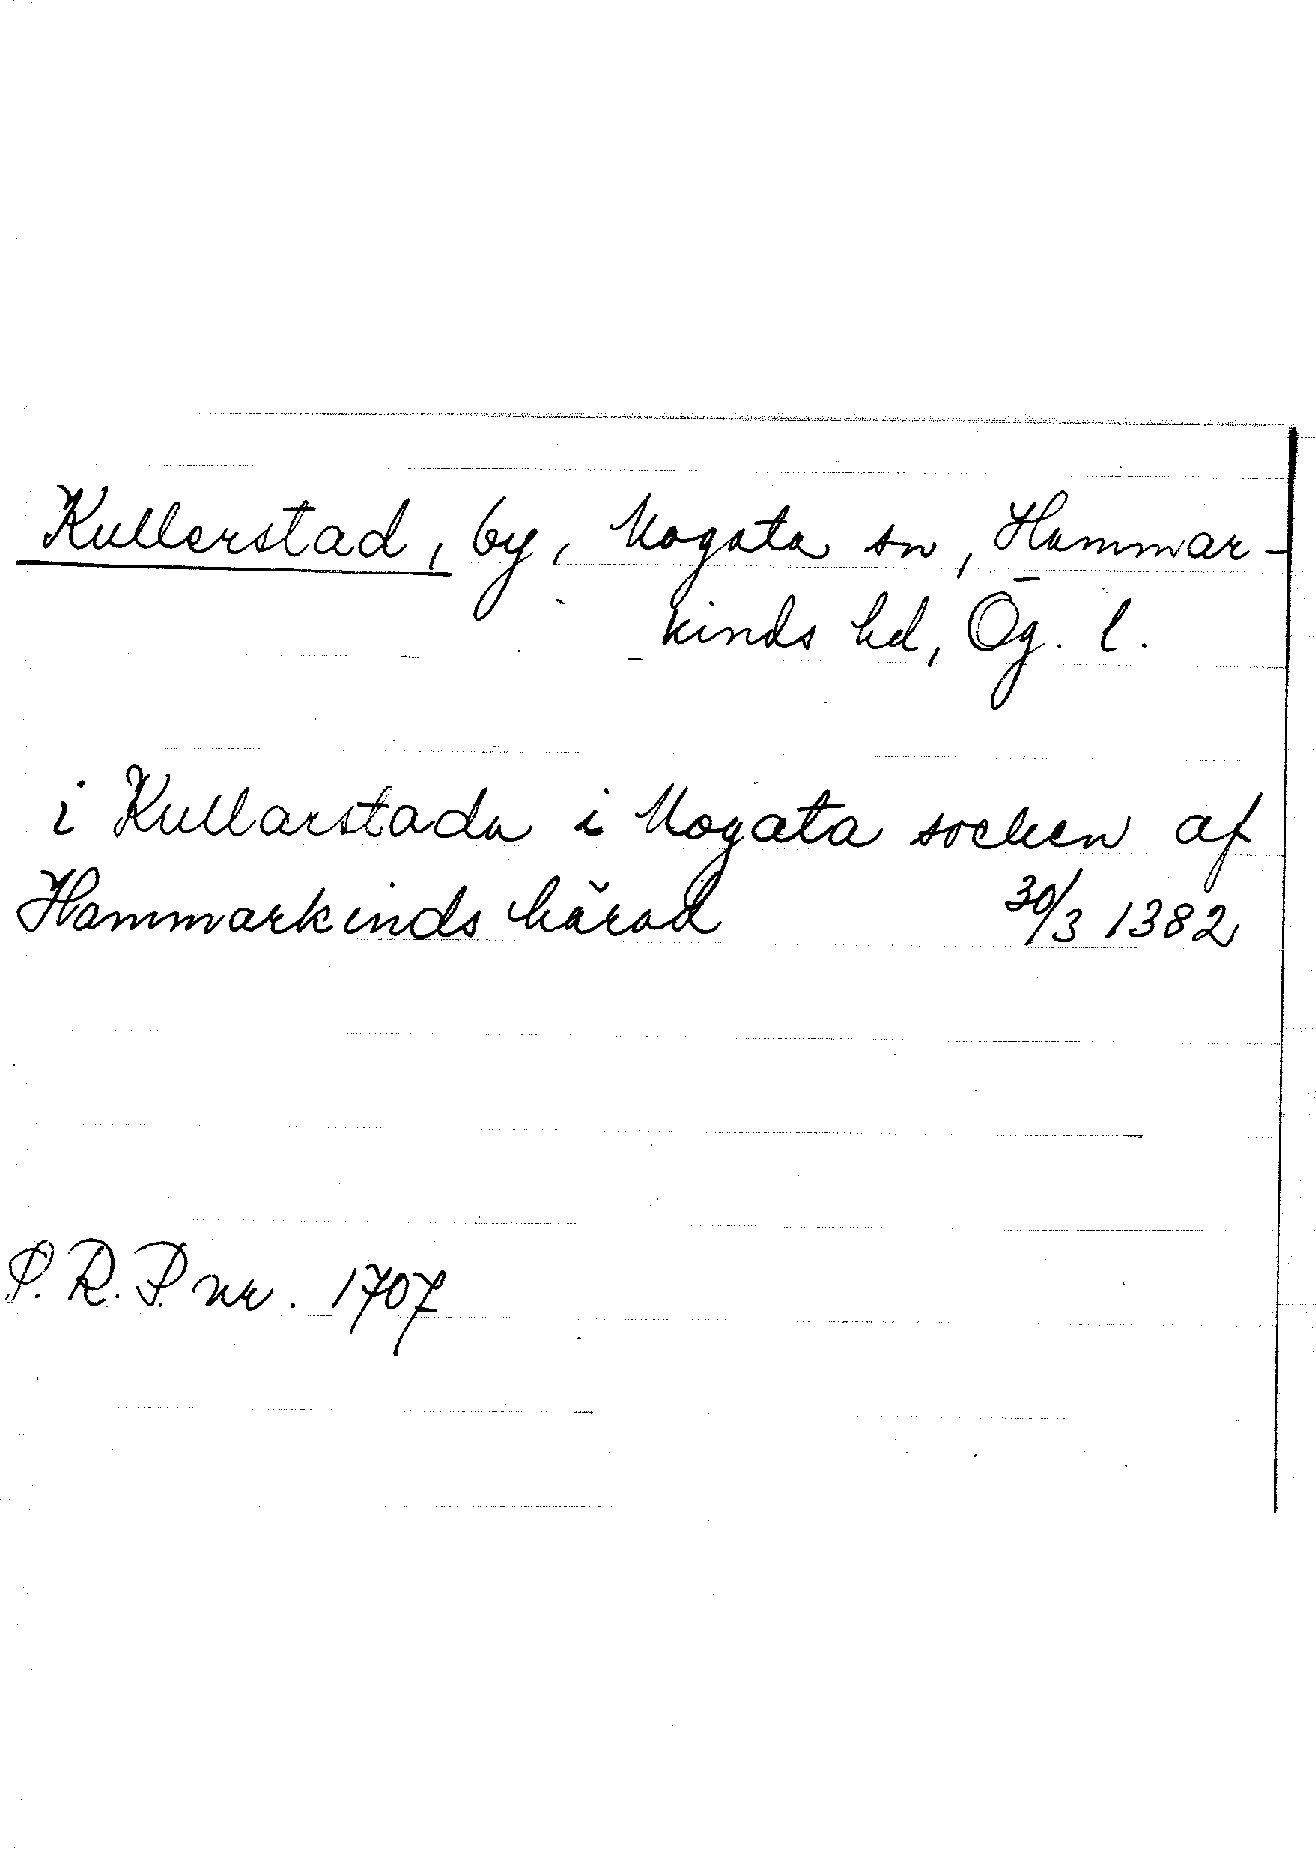 Kullerstad, by, Mogata sn, Hammar-
kinds hd, Ög. l.
i Kullarstada i Mogata socken af
Hammarkinds härad 30/3 1382
S.R.P. nr. 1707